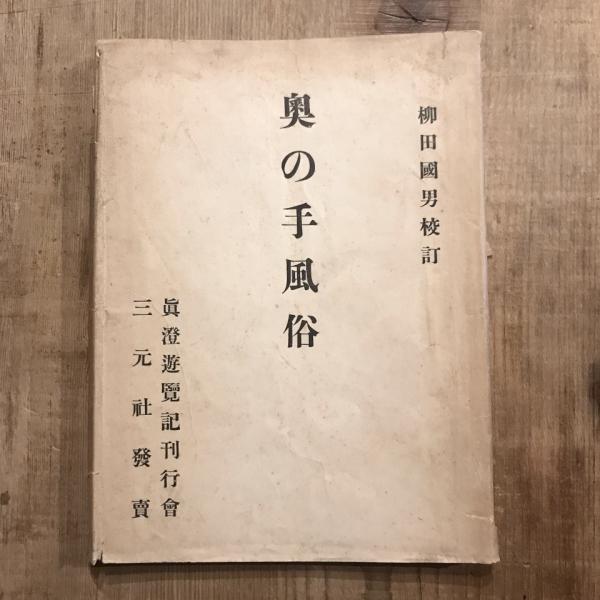 柳田國男校訂
奥の手風俗
眞澄遊覽記刊行會
三元社發賣